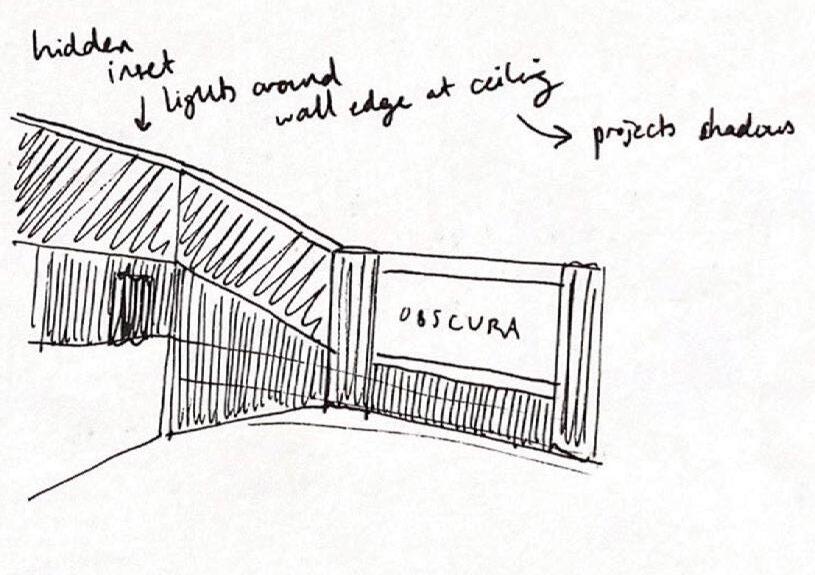 hidden
inset
lights around
wall edge at ceiling
projects shadows
OBSCURA